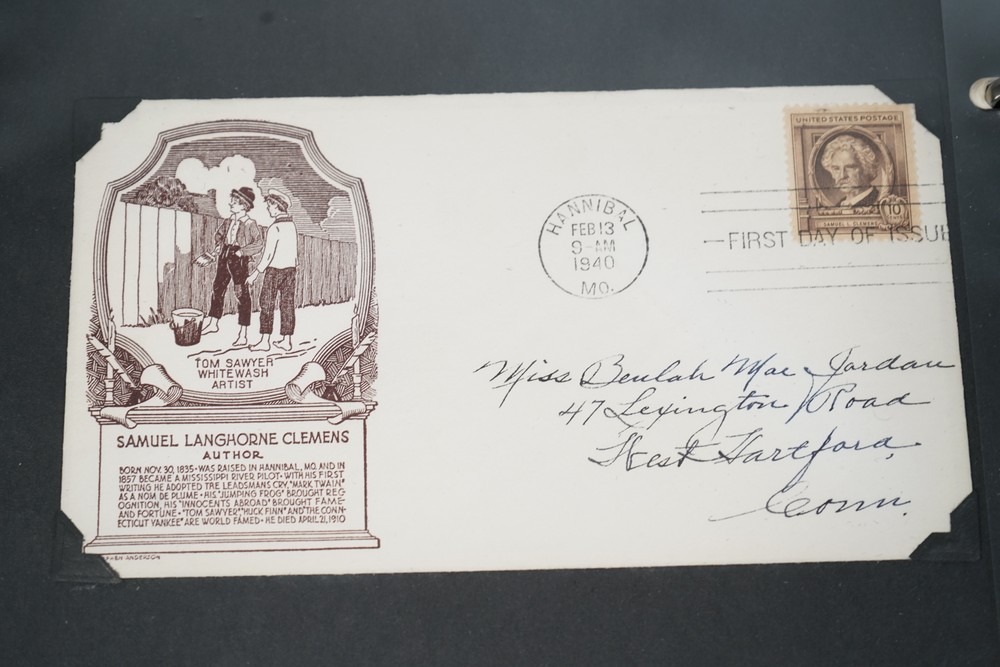 TOM SAWYER
WHITEWASH
ARTIST
SAMUEL LANGHORNE CLEMENS
AUTHOR
BORN NOV. 30, 1835 · WAS RAISED IN HANNIBAL, MO. AND IN
1857 BECAME A MISSISSIPPI RIVER PILOT · WITH HIS FIRST
WRITING HE ADOPTED THE LEADSMANS CRY, "MARK TWAIN"
AS A NOM DE PLUME · HIS "JUMPING FROG" BROUGHT REC-
OGNITION, HIS "INNOCENTS ABROAD" BROUGHT FAME
AND FORTUNE · "TOM SAWYER", "HUCK FINN" AND "THE CONN-
ECTICUT YANKEE" ARE WORLD FAMED · HE DIED APRIL 21, 1910
ANDERSON
HANNIBAL
FEB 13
9-AM
1940
MO.
UNITED STATES POSTAGE
10
SAMUEL L. CLEMENS
FIRST DAY OF ISSUE
Miss Beulah Mae Jordan
47 Lexington Road
West Hartford,
Conn.